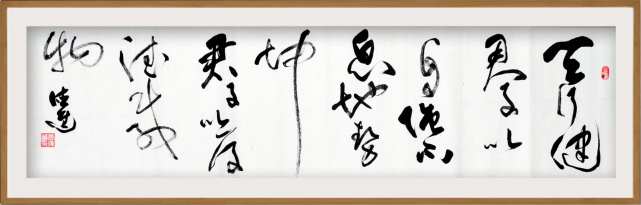 天行健
君子以
自强不
息地势
坤
君子以厚
德载
物